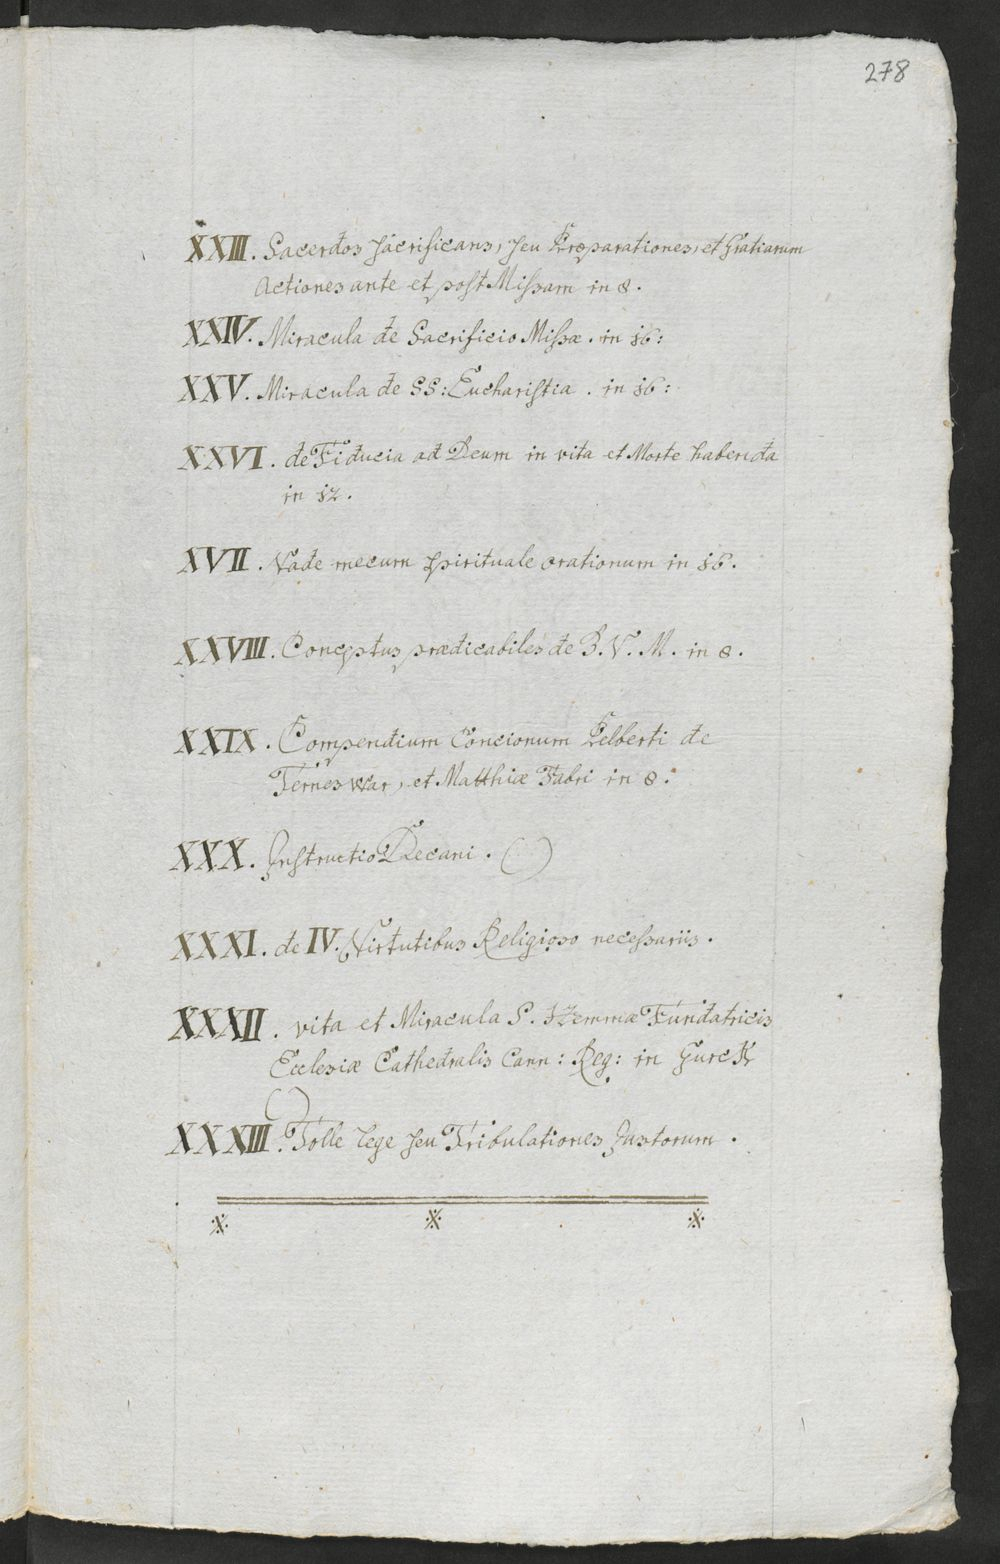 278
XXIII. Sacerdos sacrificans, seu Præparationes, et Gratiarum
Actiones ante et post Missam in 8.
XXIV. Miracula de Sacrificio Missæ. in 16:
XXV. Miracula de SS: Eucharistia. in 16:
XXVI. de Fiducia ad Deum in vita et Morte habenda
in 12.
XVII. Vade mecum spirituale orationum in 16.
XXVIII. Conceptus prædicabiles de B. V. M. in 8.
XXIX. Compendium Concionum Pelberti de
Temeswar, et Matthiæ Fabri in 8.
XXX. Instructio Decani. ( )
XXXI. de IV. Virtutibus Religioso necessariis.
XXXII. vita et Miracula S. Hemmæ Fundatricis
Ecclesiæ Cathedralis Cann: Reg: in Gurck
XXXIII. Tolle lege seu Tribulationes Justorum.